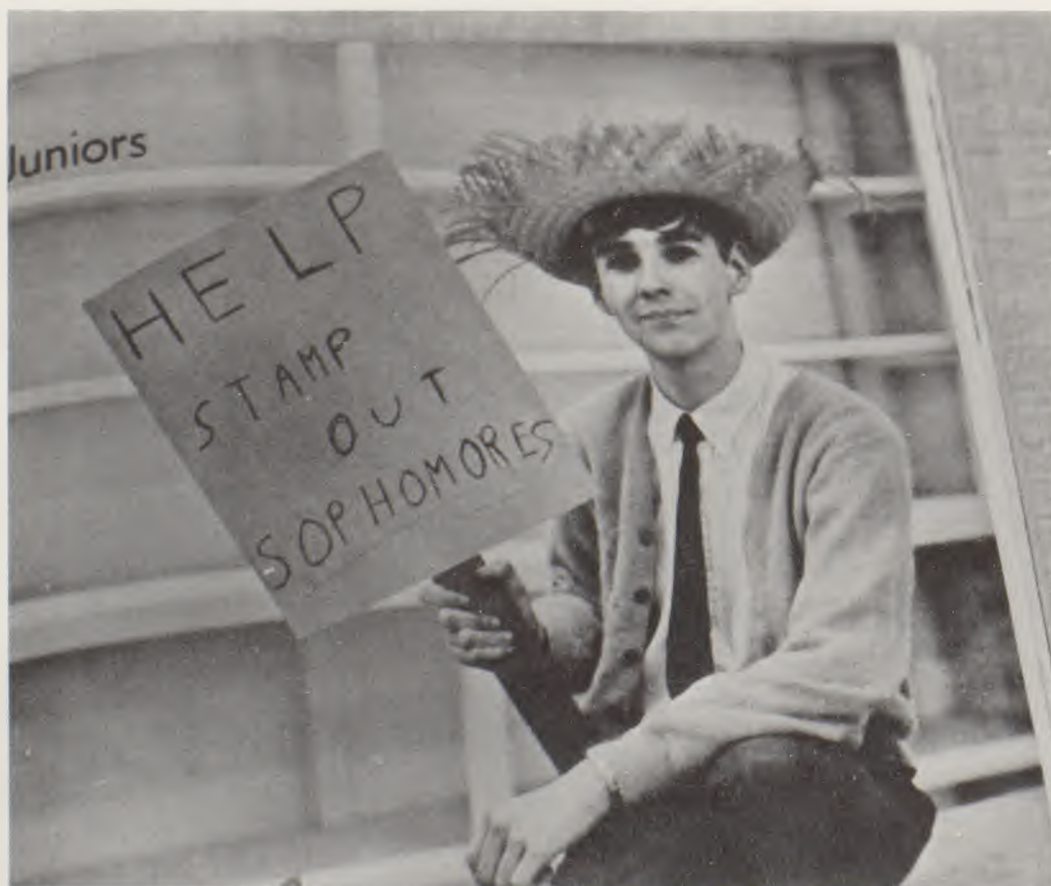 Juniors
HELP
STAMP
OUT
SOPHOMORES